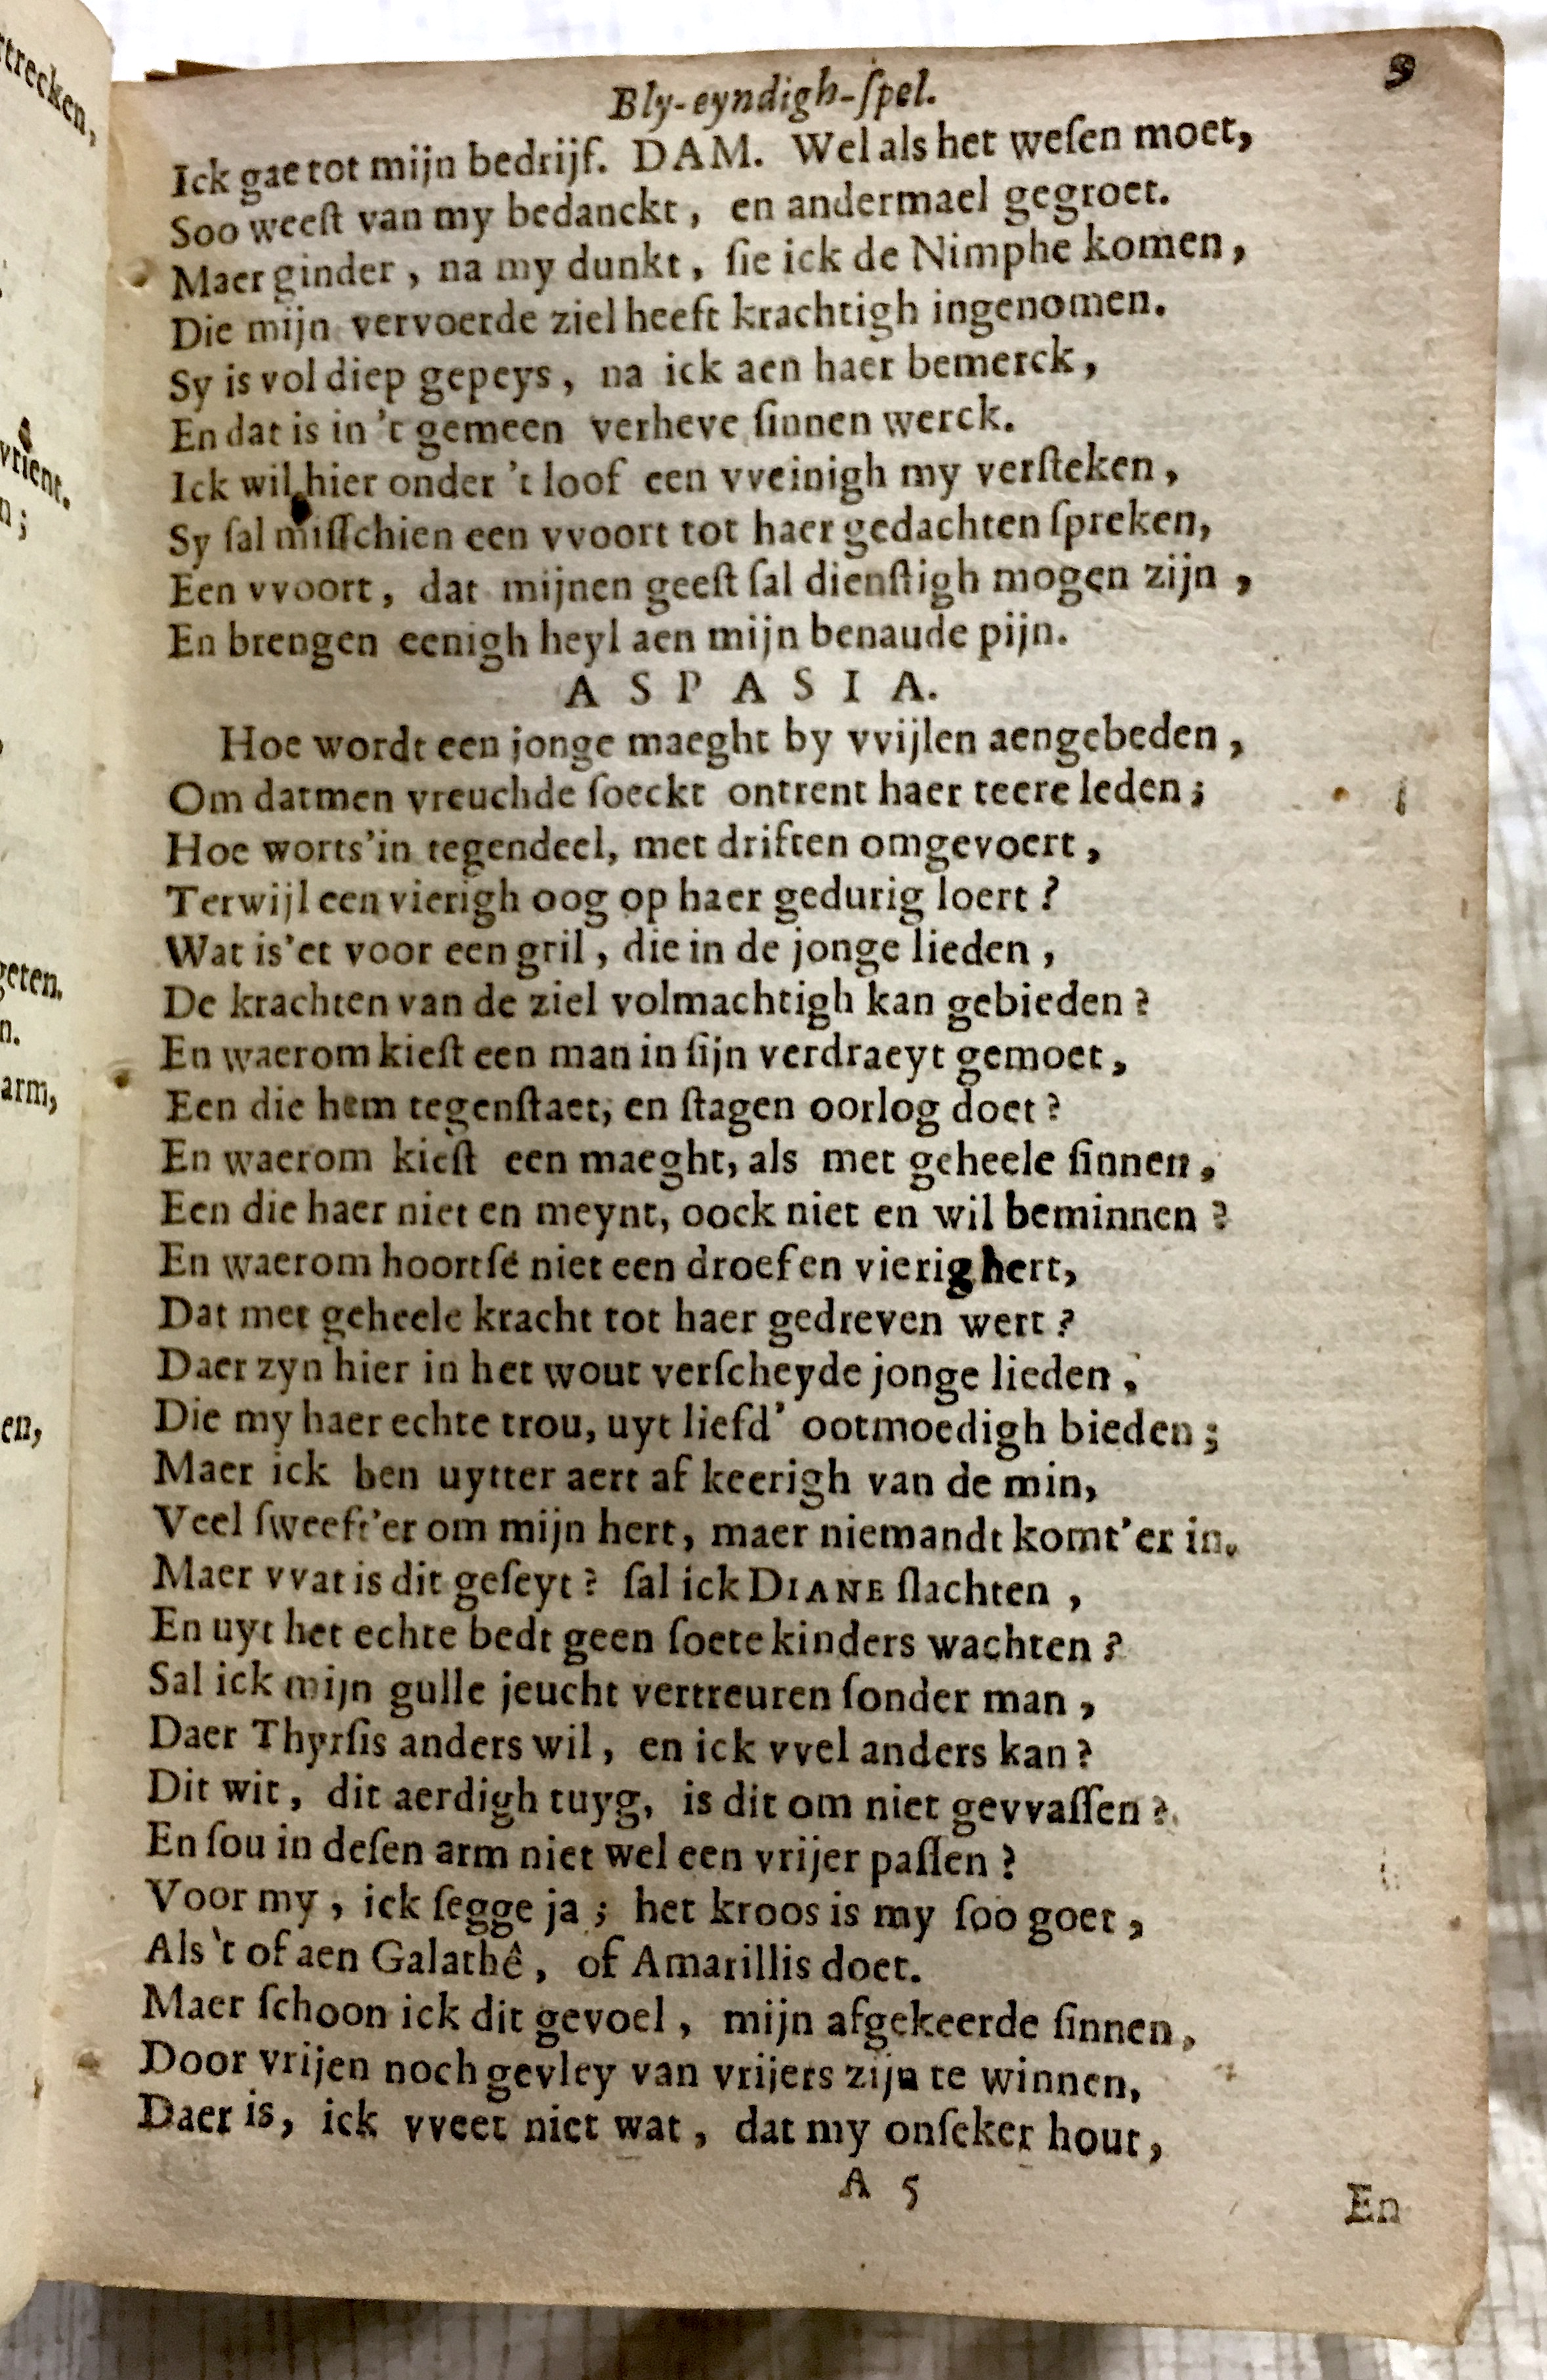 Bly-eyndigh-ſpel. 9
Ick gae tot mijn bedrijf. DAM. Wel als het weſen moet,
Soo weeſt van my bedanckt, en andermael gegroet.
Maer ginder, na my dunkt, ſie ick de Nimphe komen,
Die mijn vervoerde ziel heeft krachtigh ingenomen.
Sy is vol diep gepeys, na ick aen haer bemerck,
En dat is in 't gemeen verheve ſinnen werck.
Ick wil hier onder 't loof een vveinigh my verſteken,
Sy ſal miſſchien een vvoort tot haer gedachten ſpreken,
Een vvoort, dat mijnen geeſt ſal dienſtigh mogen zijn,
En brengen eenigh heyl aen mijn benaude pijn.
A S P A S I A.
Hoe wordt een jonge maeght by vvijlen aengebeden,
Om datmen vreuchde ſoeckt ontrent haer teere leden;
Hoe worts'in tegendeel, met driften omgevoert,
Terwijl een vierigh oog op haer gedurig loert?
Wat is'et voor een gril, die in de jonge lieden,
De krachten van de ziel volmachtigh kan gebieden?
En waerom kieſt een man in ſijn verdraeyt gemoet,
Een die hem tegenſtaet, en ſtagen oorlog doet?
En waerom kieſt een maeght, als met geheele ſinnen,
Een die haer niet en meynt, oock niet en wil beminnen?
En waerom hoortſe niet een droef en vierig hert,
Dat met geheele kracht tot haer gedreven wert?
Daer zyn hier in het wout verſcheyde jonge lieden,
Die my haer echte trou, uyt liefd' ootmoedigh bieden;
Maer ick ben uytter aert af keerigh van de min,
Veel ſweeft'er om mijn hert, maer niemandt komt'er in.
Maer vvat is dit geſeyt? ſal ick DIANE ſlachten,
En uyt het echte bedt geen ſoete kinders wachten?
Sal ick mijn gulle jeucht vertreuren ſonder man,
Daer Thyrſis anders wil, en ick vvel anders kan?
Dit wit, dit aerdigh tuyg, is dit om niet gevvaſſen?
En ſou in deſen arm niet wel een vrijer paſſen?
Voor my, ick ſegge ja; het kroos is my ſoo goet,
Als 't of aen Galathê, of Amarillis doet.
Maer ſchoon ick dit gevoel, mijn afgekeerde ſinnen,
Door vrijen noch gevley van vrijers zijn te winnen,
Daer is, ick vveet niet wat, dat my onſeker hout,
A 5
En
trecken,
vrient.
n;
geten.
n.
arm,
en,